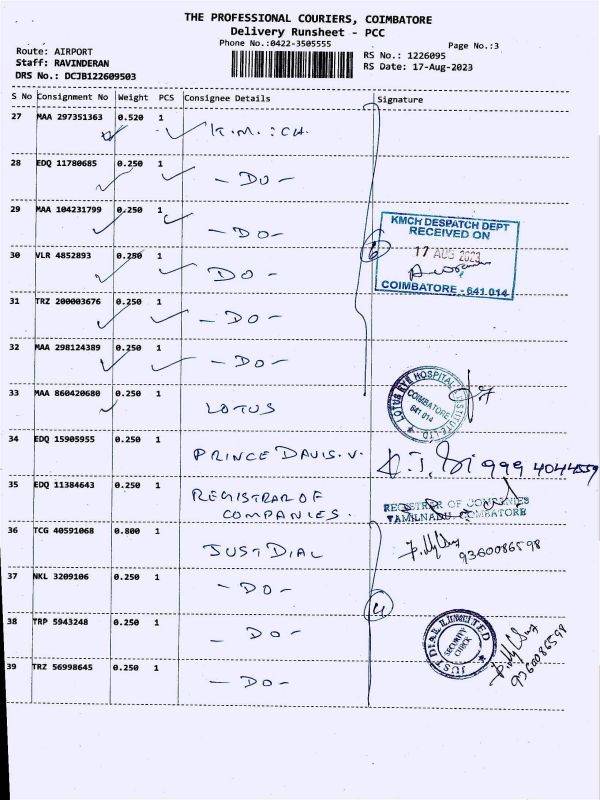 THE PROFESSIONAL COURIERS, COIMBATORE
Delivery Runsheet - PCC
Phone No.:0422-3505555
Page No.:3
Route: AIRPORT
RS No.: 1226095
Staff: RAVINDERAN
RS Date: 17-Aug-2023
DRS No.: DCJB122609503
S No Consignment No Weight PCS Consignee Details Signature
27 MAA 297351363 0.520 1
K.M.:CH.
28 EDQ 11780685 0.250 1
- DO -
29 MAA 104231799 0.250 1
- DO -
KMCH DESPATCH DEPT
RECEIVED ON
17 AUG 2023
COIMBATORE - 641 014
30 VLR 4852893 0.250 1
6
DO -
31 TRZ 200003676 0.250 1
- DO -
32 MAA 298124389 0.250 1
- DO -
33 MAA 860420680 0.250 1
LOTUS
LOTUS EYE HOSPITAL & INSTITUTE LTD
COIMBATORE
641 014
34 EDQ 15905955 0.250 1
PRINCE DAVIS.V.
999 4044559
35 EDQ 11384643 0.250 1
REGISTRAR OF
COMPANIES.
REGISTRAR OF COMPANIES
TAMILNADU COIMBATORE
36 TCG 40591068 0.800 1
JUST DIAL
9360086598
37 NKL 3209106 0.250 1
- DO -
4
38 TRP 5943248 0.250 1
- DO -
JUST DIAL LIMITED
SECURITY
CHECK
9360086598
39 TRZ 56998645 0.250 1
- DO -